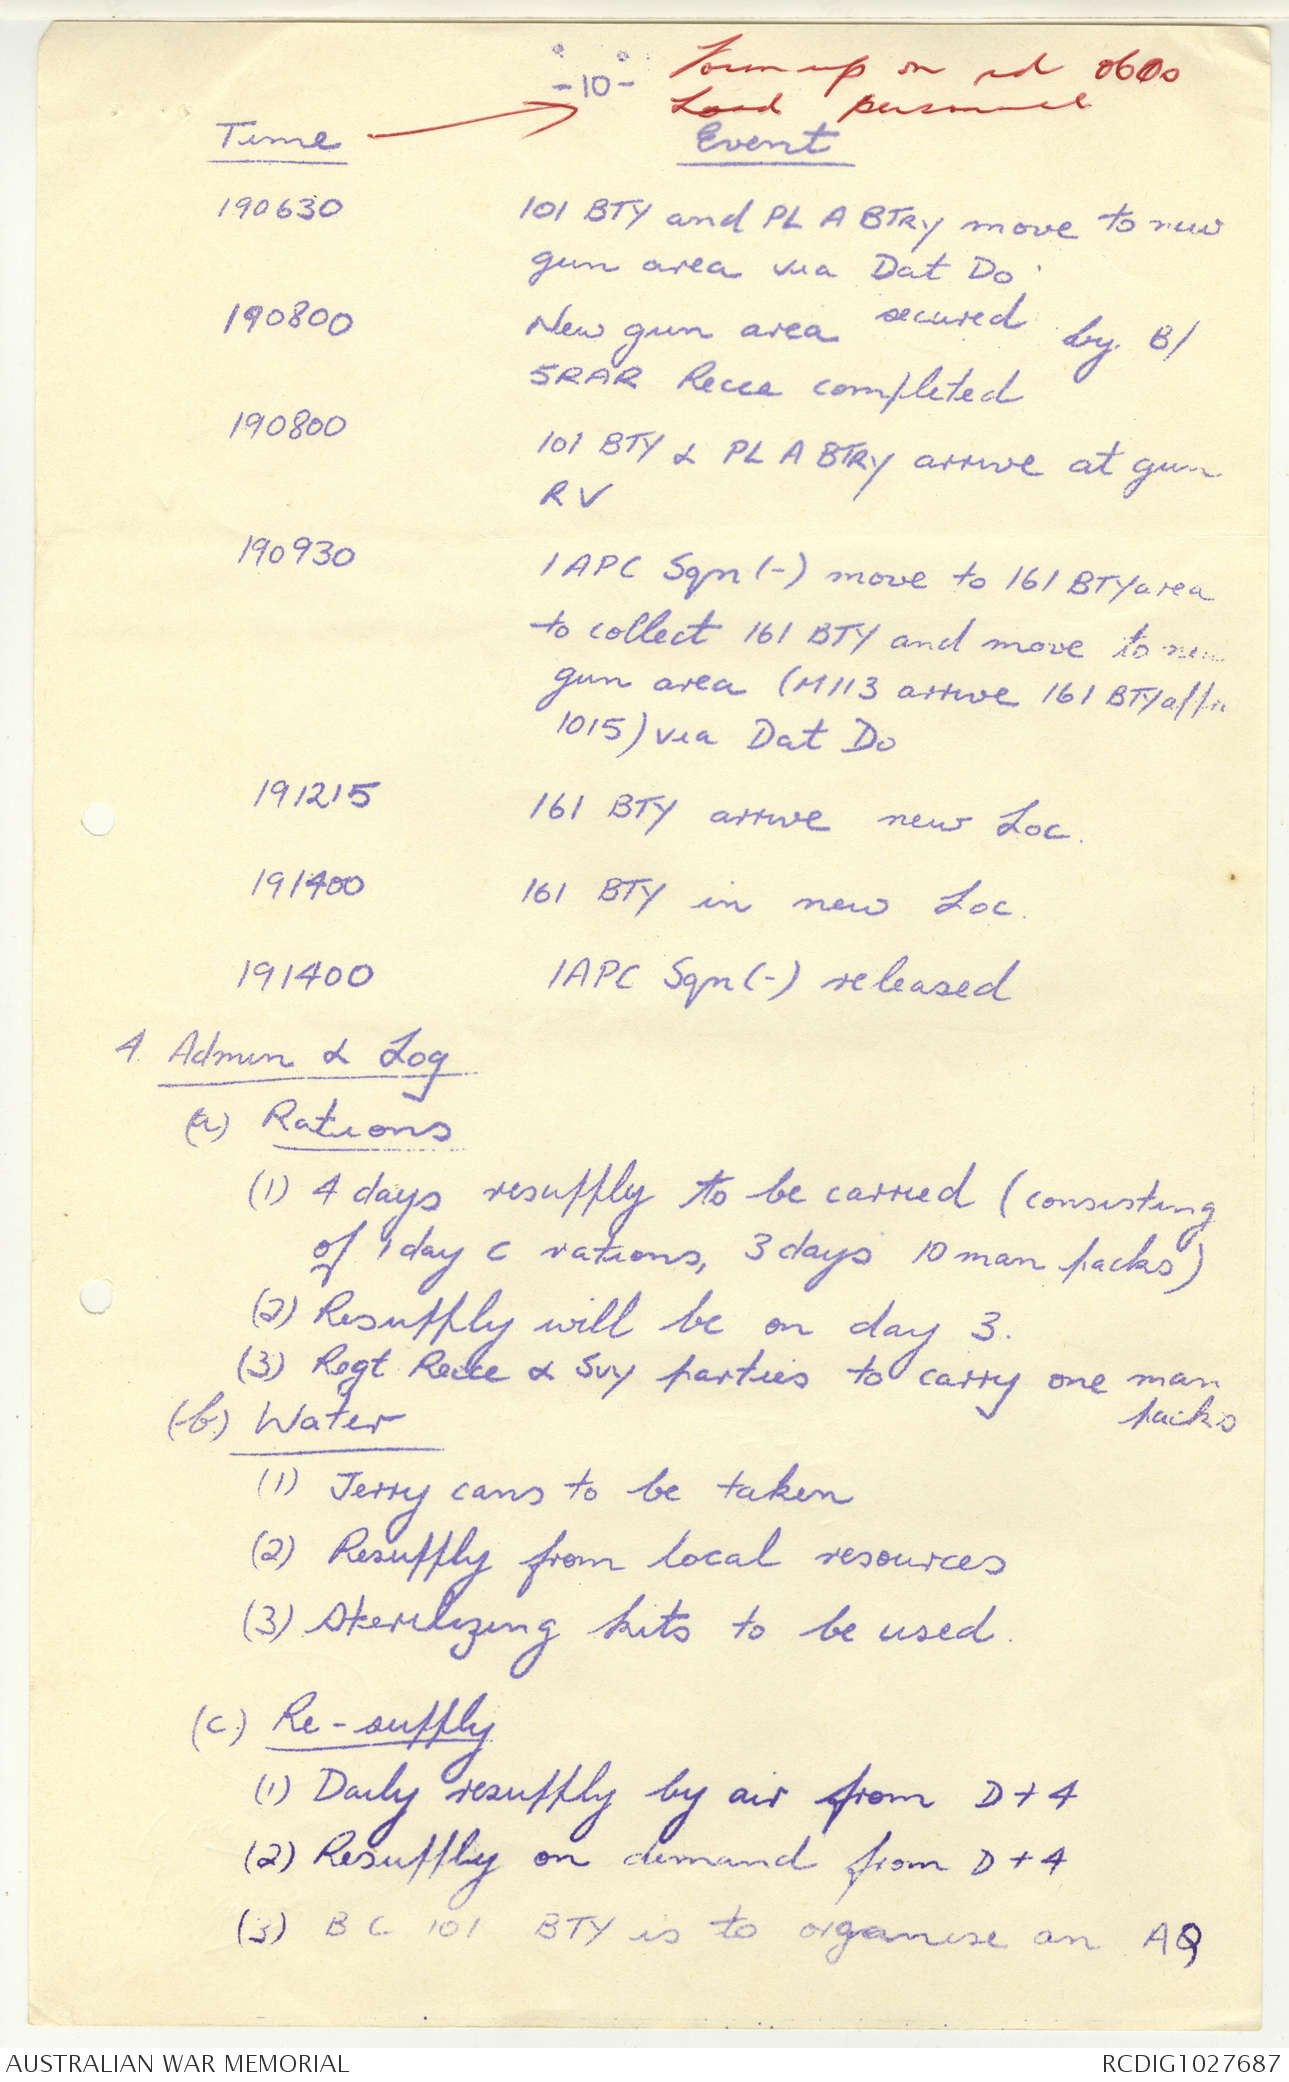 -10-
Form up on rd 0600
Load personnel
Time Event
190630 101 BTY and PL A BTRY move to new
gun area via Dat Do
190800 New gun area secured by B/
5RAR Recce completed
190800 101 BTY & PL A BTRY arrive at gun
RV
190930 1 APC Sqn (-) move to 161 BTY area
to collect 161 BTY and move to new
gun area (M113 arrive 161 BTY
1015) via Dat Do
191215 161 BTY arrive new Loc.
191400 161 BTY in new Loc.
191400 1APC Sqn (-) released
4. Admin & Log
(a) Rations
(1) 4 days resupply to be carried (consisting
of 1 day C rations, 3 days 10 man packs)
(2) Resupply will be on day 3.
(3) Regt Recce & Svy parties to carry one man
packs
(b) Water
(1) Jerry cans to be taken
(2) Resupply from local resources
(3) Sterilizing kits to be used.
(c) Re-supply
(1) Daily resupply by air from D+4
(2) Resupply on demand from D+4
(3) BC 101 BTY is to organise an AQ
AUSTRALIAN WAR MEMORIAL RCDIG1027687